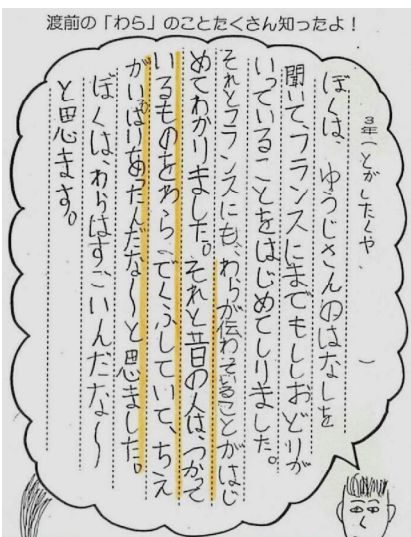 渡前の「わら」のことたくさん知ったよ！
3年（とがしたくや　）
ぼくは、ゆうじさんのはなしを
聞いて、フランスにまでもししおどりが
いっていることをはじめてしりました。
それとフランスにも、わらが伝わっていることがはじ
めてわかりました。それと昔の人は、つかって
いるものをわらでくふしていて、ちえ
がいぱりあったんだな～と思ました。
ぼくは、わらはすごいんだな～
と思ます。